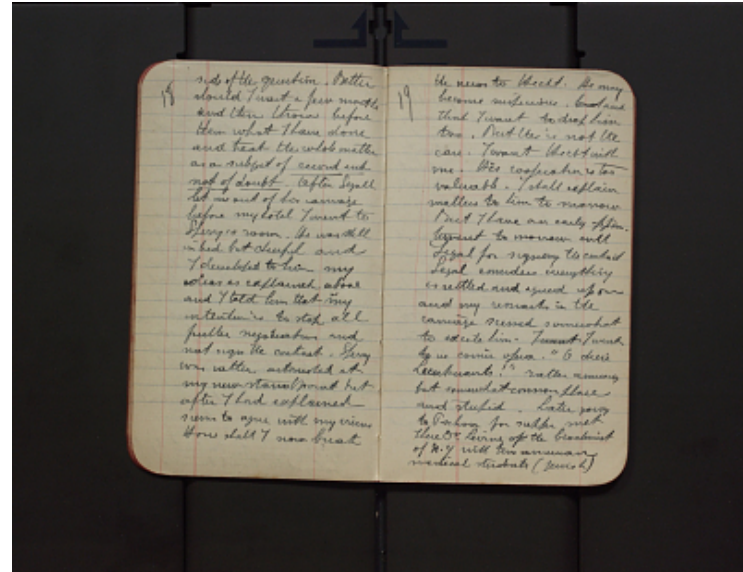 18
side of the question. Better
should I wait a few months
and then throw before
them what I have done
and treat the whole matter
as a subject of record and
not of doubt. After Segall
let me out of his carriage
before my hotel I went to
Sperry's room. He was still
in bed but cheerful and
I detailed to him my
ideas as explained above
and I told him that my
intention is to stop all
further negotiation and
not sign the contract. Sperry
was rather astonished at
my new standpoint but
after I had explained
seems to agree with my views
How shall I now break
19
the news to Hecht. He may
become suspicious. and
that I want to drop him
too. But this is not the
case. I want Hecht with
me. His cooperation is too
valuable. I shall explain
matters to him to morrow
But I have an early
to morrow with
Segal for signing the contract
Segal considers everything
is settled and agreed upon
and my remarks in the
carriage seemed somewhat
to excite him. I went
to
rather amusing
but somewhat common place
and stupid. Later going
to for supper met
there Dr. the
of N.Y. with two american
medical students (Jewish)